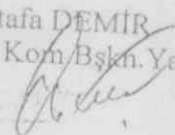 tafa DEMİR
Kom.Bşkn.Ya